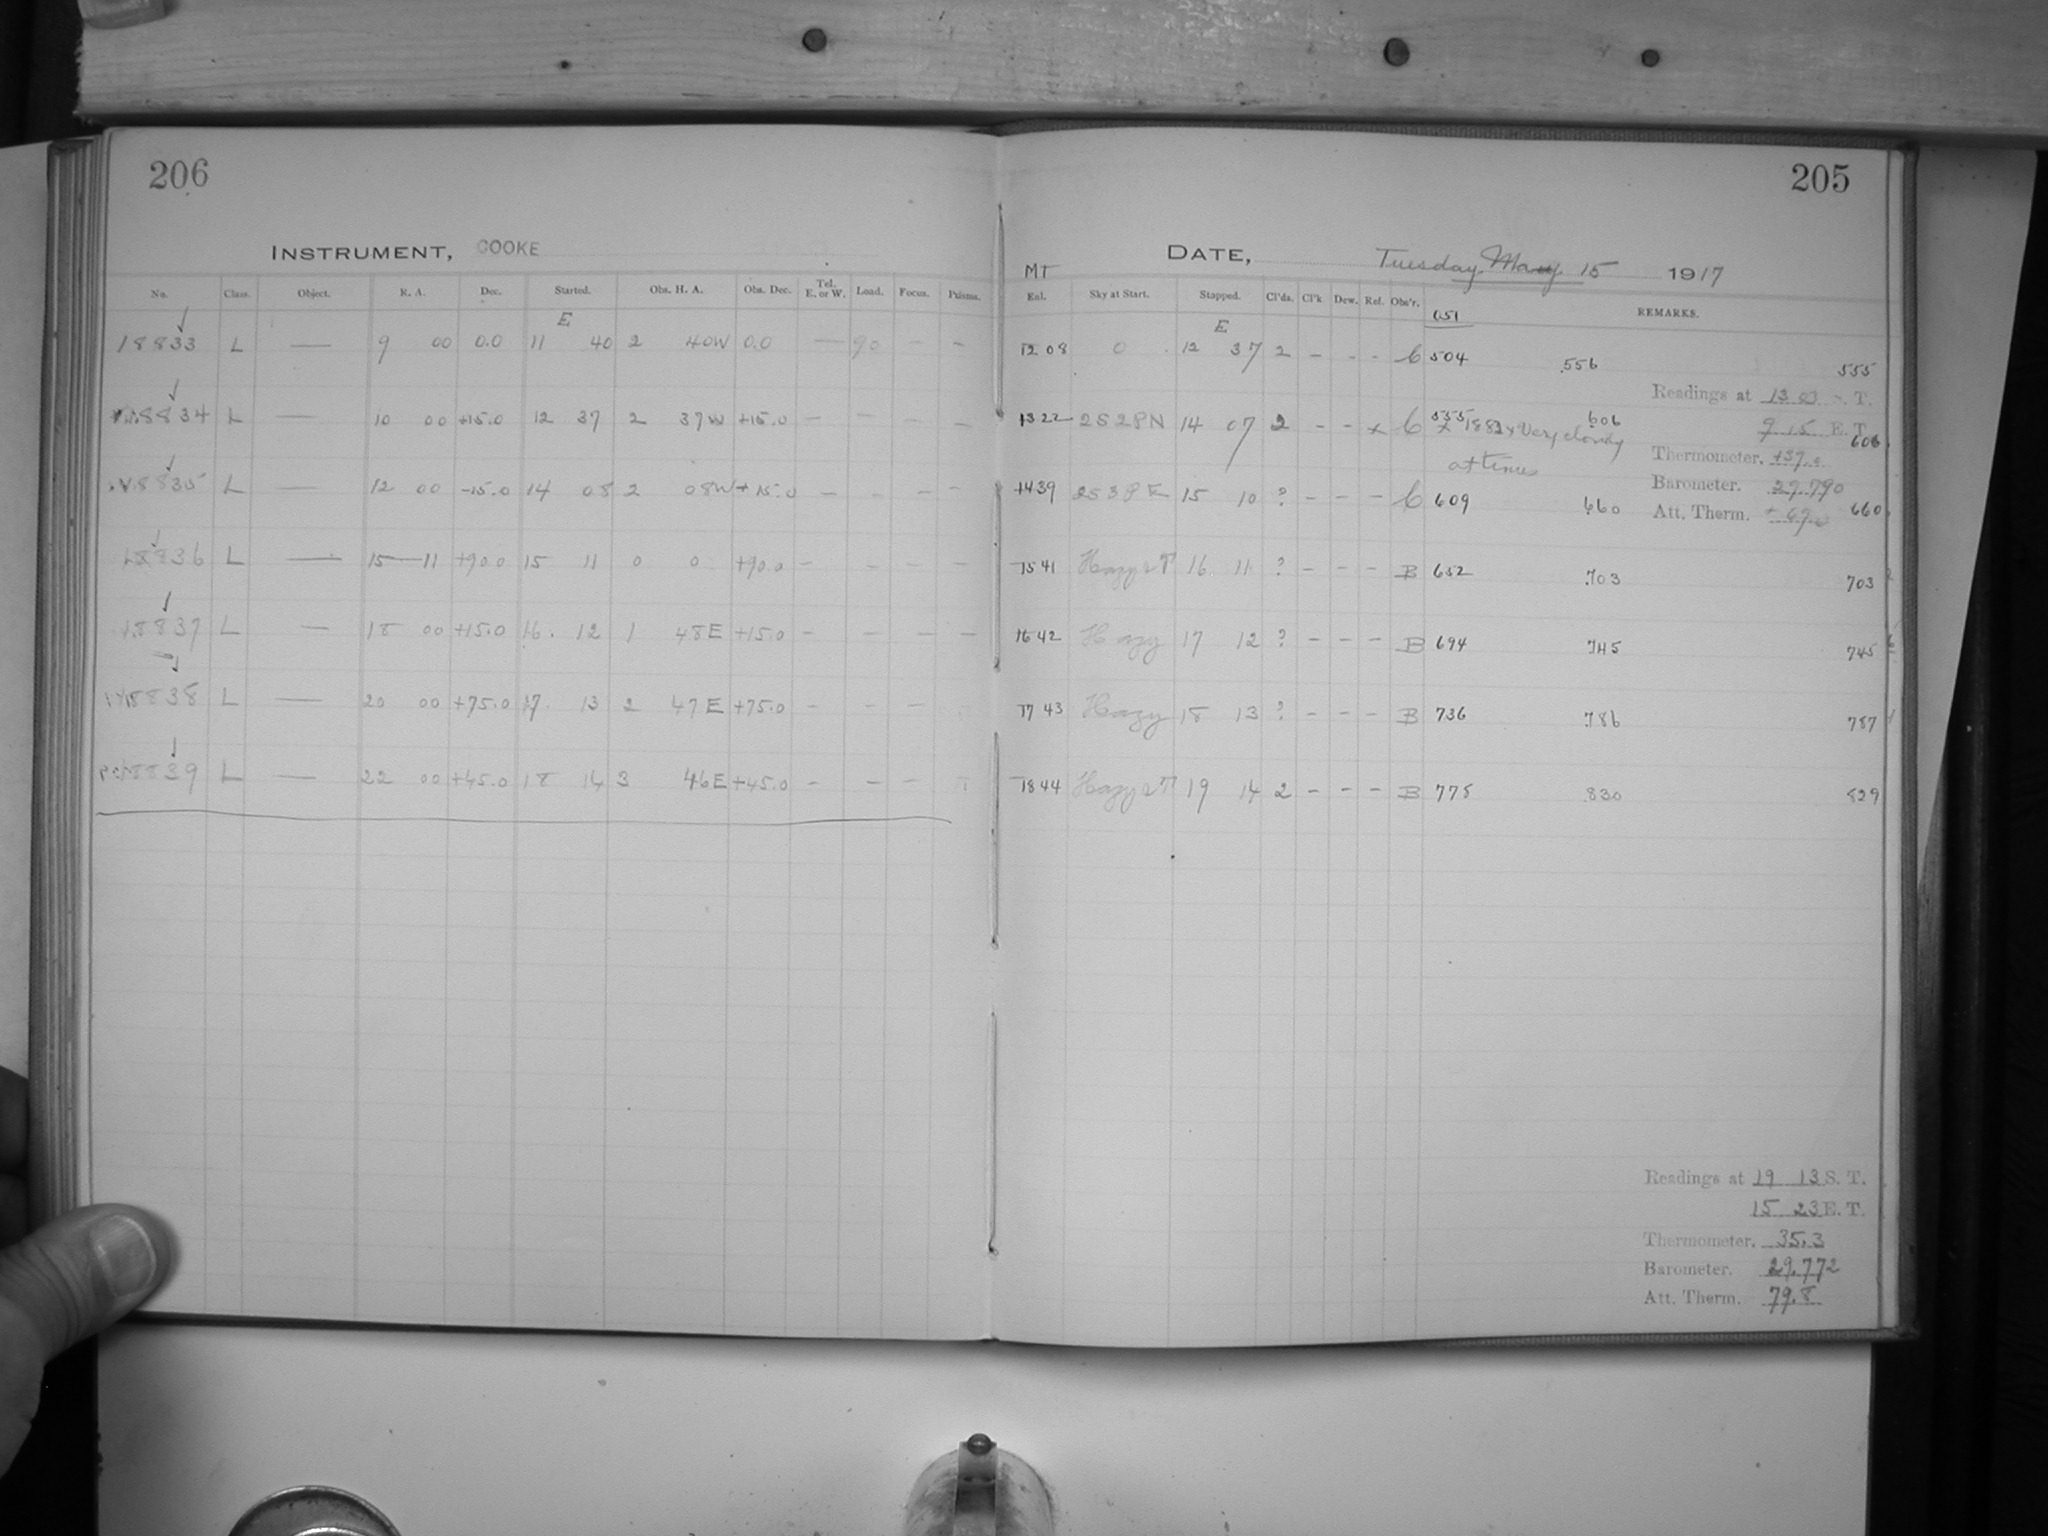 206
INSTRUMENT, COOKE
No. Class. Object. R. A. Dec. Started. Obs. H. A. Obs. Dec. Tel. E. or W. Load. Focus. Prisms.
E
18833 L — 9 00 0.0 11 40 2 40W 0.0 — 90 - -
18834 L — 10 00 +15.0 12 37 2 37W +15.0 - - - -
18835 L — 12 00 -15.0 14 08 2 08W +15.0 - - - -
18836 L — 15 11 +90.0 15 11 0 0 +90.0 - - - -
18837 L — 18 00 +15.0 16 12 1 48E +15.0 - - - -
18838 L — 20 00 +75.0 17 13 2 47E +75.0 - - -
18839 L — 22 00 +45.0 18 14 3 46E +45.0 - - -
205
DATE, Tuesday May 15 1917
MT
Eal. Sky at Start. Stopped. Cl'ds. Cl'k Dew. Ref. Obs'r. REMARKS.
051
E
12 08 0 12 37 2 - - - C 504 556 555
Readings at 13 03 S. T.
13 22 2S2PN 14 07 2 - - x C 555 606 606
x 1883x Very cloudy
at times
9 15 E. T.
Thermometer. +37.0
Barometer. 29.790
Att. Therm.
14 39 2S3PE 15 10 ? - - - C 609 660 660
15 41 Hazy 16 11 ? - - - B 652 703 703
16 42 Hazy 17 12 ? - - - B 694 745 745
17 43 Hazy 18 13 ? - - - B 736 786 787
18 44 Hazy 19 14 2 - - - B 778 830 829
Readings at 19 13 S. T.
15 23 E. T.
Thermometer. 35.3
Barometer. 29.772
Att. Therm. 79.8